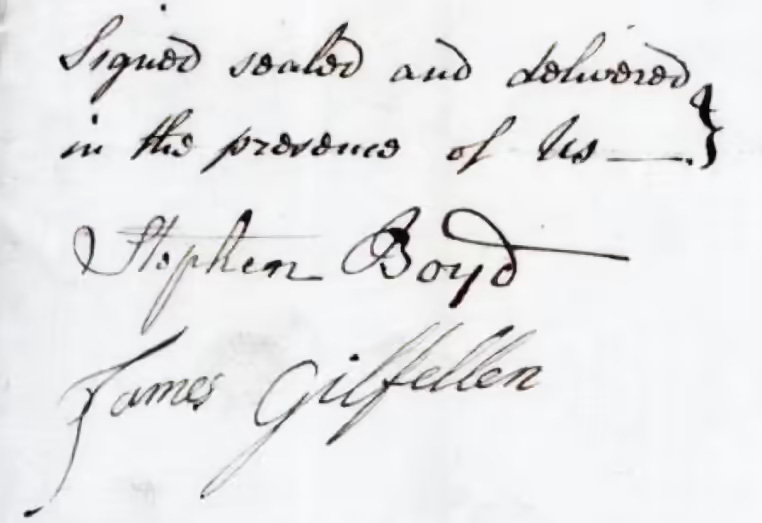 Signed sealed and delivered
in the presence of Us —. }
Stephen Boyd
James Gilfellen